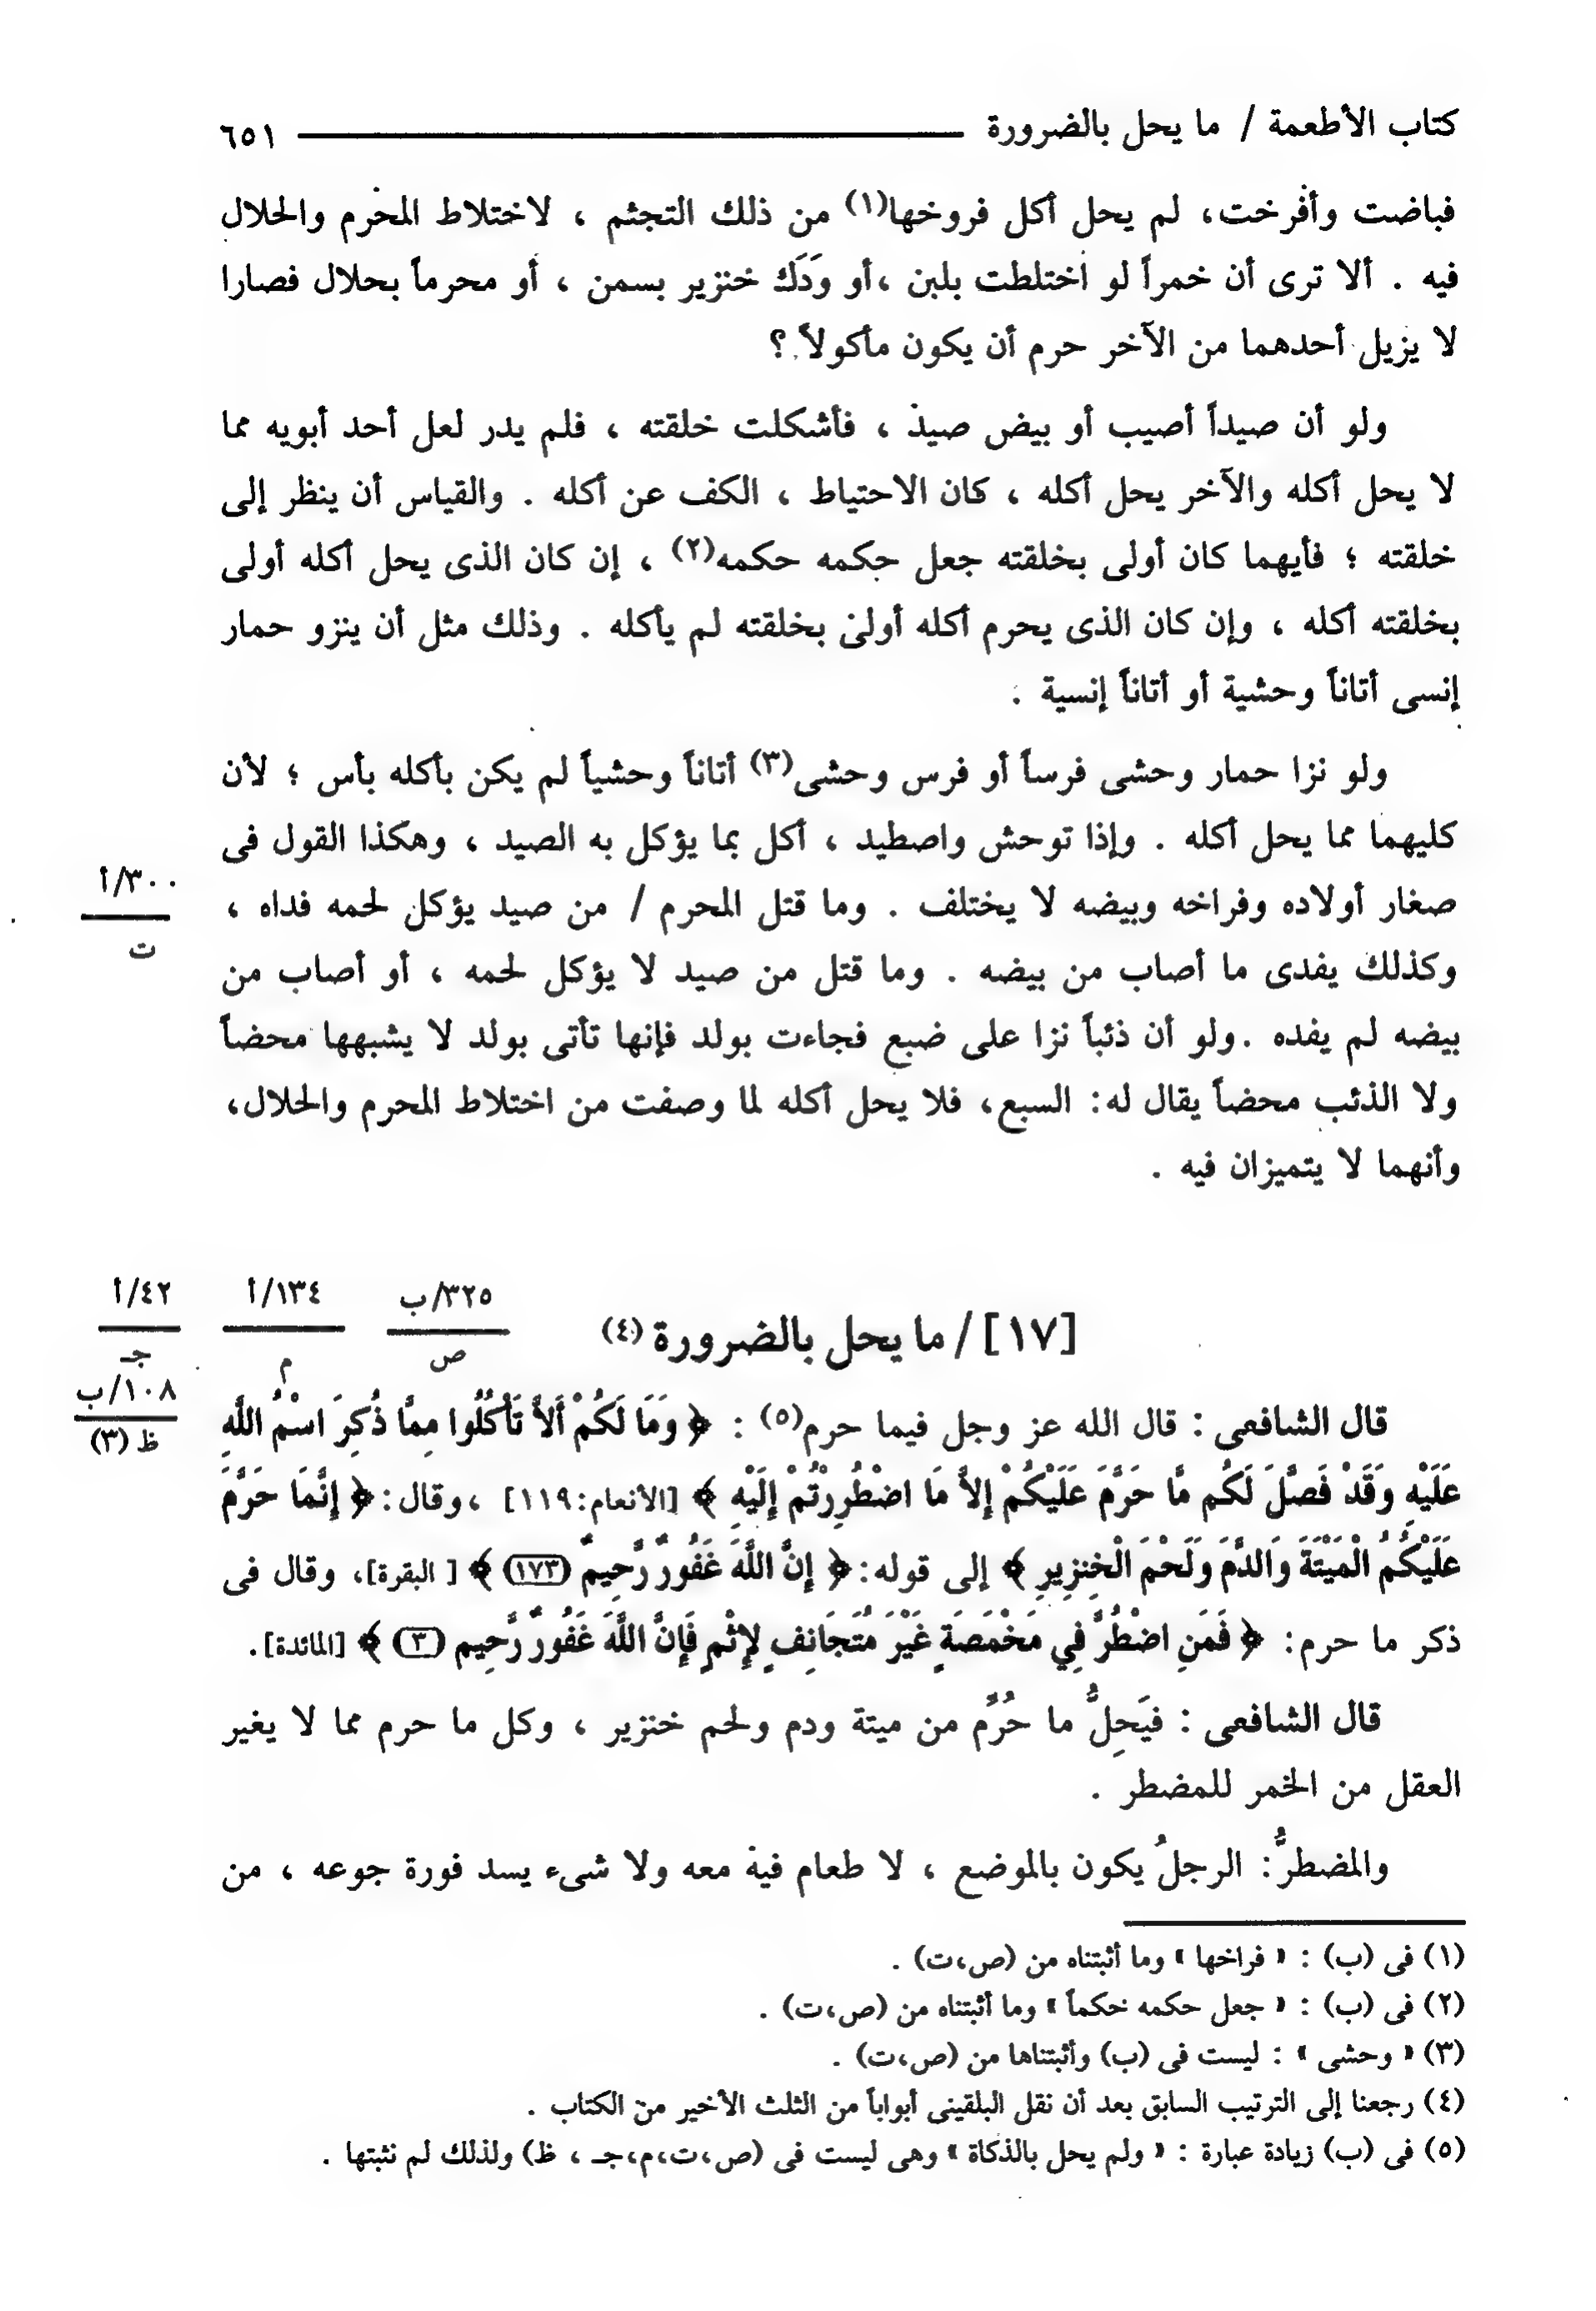 كتاب الأطعمة / ما يحل بالضرورة ٦٥١
فباضت وأفرخت، لم يحل أكل فروخها(١) من ذلك التجثم ، لاختلاط المحرم والحلال
فيه . ألا ترى أن خمراً لو اختلطت بلبن ،أو وَدَك خنزير بسمن ، أو محرماً بحلال فصارا
لا يزيل أحدهما من الآخر حرم أن يكون مأكولاً ؟
ولو أن صيداً أصيب أو بيض صيد ، فأشكلت خلقته ، فلم يدر لعل أحد أبويه مما
لا يحل أكله والآخر يحل أكله ، كان الاحتياط ، الكف عن أكله . والقياس أن ينظر إلى
خلقته ؛ فأيهما كان أولى بخلقته جعل حكمه حكمه(٢) ، إن كان الذى يحل أكله أولى
بخلقته أكله ، وإن كان الذى يحرم أكله أولى بخلقته لم يأكله . وذلك مثل أن ينزو حمار
إنسى أتاناً وحشية أو أتاناً إنسية .
ولو نزا حمار وحشى فرساً أو فرس وحشى(٣) أتاناً وحشياً لم يكن بأكله بأس ؛ لأن
كليهما مما يحل أكله . وإذا توحش واصطيد ، أكل بما يؤكل به الصيد ، وهكذا القول فى
٣٠٠/أ
صغار أولاده وفراخه وبيضه لا يختلف . وما قتل المحرم / من صيد يؤكل لحمه فداه ،
ت
وكذلك يفدى ما أصاب من بيضه . وما قتل من صيد لا يؤكل لحمه ، أو أصاب من
بيضه لم يفده .ولو أن ذئباً نزا على ضبع فجاءت بولد فإنها تأتى بولد لا يشبهها محضاً
ولا الذئب محضاً يقال له: السبع، فلا يحل أكله لما وصفت من اختلاط المحرم والحلال،
وأنهما لا يتميزان فيه .
[١٧] / ما يحل بالضرورة (٤)
٣٢٥/ب ١٣٤/أ ٤٢/أ
ص م جـ
١٠٨/ب
ظ (٣)
قال الشافعى : قال الله عز وجل فيما حرم(٥) : ﴿ وَمَا لَكُمْ أَلاَّ تَأْكُلُوا مِمَّا ذُكِرَ اسْمُ اللَّهِ
عَلَيْهِ وَقَدْ فَصَّلَ لَكُم مَّا حَرَّمَ عَلَيْكُمْ إِلاَّ مَا اضْطُرِرْتُمْ إِلَيْهِ ﴾ [الأنعام:١١٩] ،وقال:﴿ إِنَّمَا حَرَّمَ
عَلَيْكُمُ الْمَيْتَةَ وَالدَّمَ وَلَحْمَ الْخِنزِيرِ ﴾ إلى قوله:﴿ إِنَّ اللَّهَ غَفُورٌ رَّحِيمٌ (١٧٣) ﴾ [ البقرة]، وقال فى
ذكر ما حرم: ﴿ فَمَنِ اضْطُرَّ فِي مَخْمَصَةٍ غَيْرَ مُتَجَانِفٍ لإِثْمٍ فَإِنَّ اللَّهَ غَفُورٌ رَّحِيم (٣) ﴾ [المائدة].
قال الشافعى : فيَحِلُّ ما حُرِّم من ميتة ودم ولحم خنزير ، وكل ما حرم مما لا يغير
العقل من الخمر للمضطر .
والمضطرُّ: الرجلُ يكون بالموضع ، لا طعام فيه معه ولا شىء يسد فورة جوعه ، من
(١) فى (ب) : « فراخها » وما أثبتناه من (ص،ت) .
(٢) فى (ب) : « جعل حكمه حكماً » وما أثبتناه من (ص،ت) .
(٣) « وحشى » : ليست فى (ب) وأثبتناها من (ص،ت) .
(٤) رجعنا إلى الترتيب السابق بعد أن نقل البلقينى أبواباً من الثلث الأخير من الكتاب .
(٥) فى (ب) زيادة عبارة : « ولم يحل بالذكاة » وهى ليست فى (ص،ت،م،جـ ، ظ) ولذلك لم نثبتها .